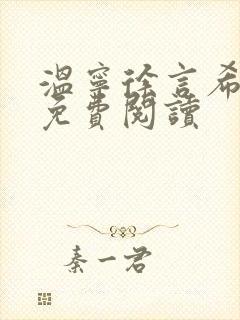 溫寧徐言希
免費閱讀
秦一君